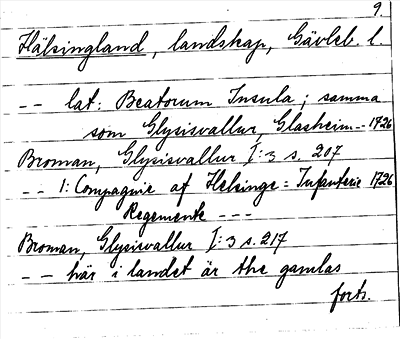 9.
Hälsingland, landskap, Gävleb. l.
-- lat: Beatorum Insula; samma
som Glysisvallur, Glasheim -- 1726
Broman, Glysisvallur I:3 s. 207
-- 1: Compagnie af Helsinge = Infanterie 1726
Regemente ---
Broman, Glysisvallur I:3 s. 217
-- här i landet är the gamlas
forts.